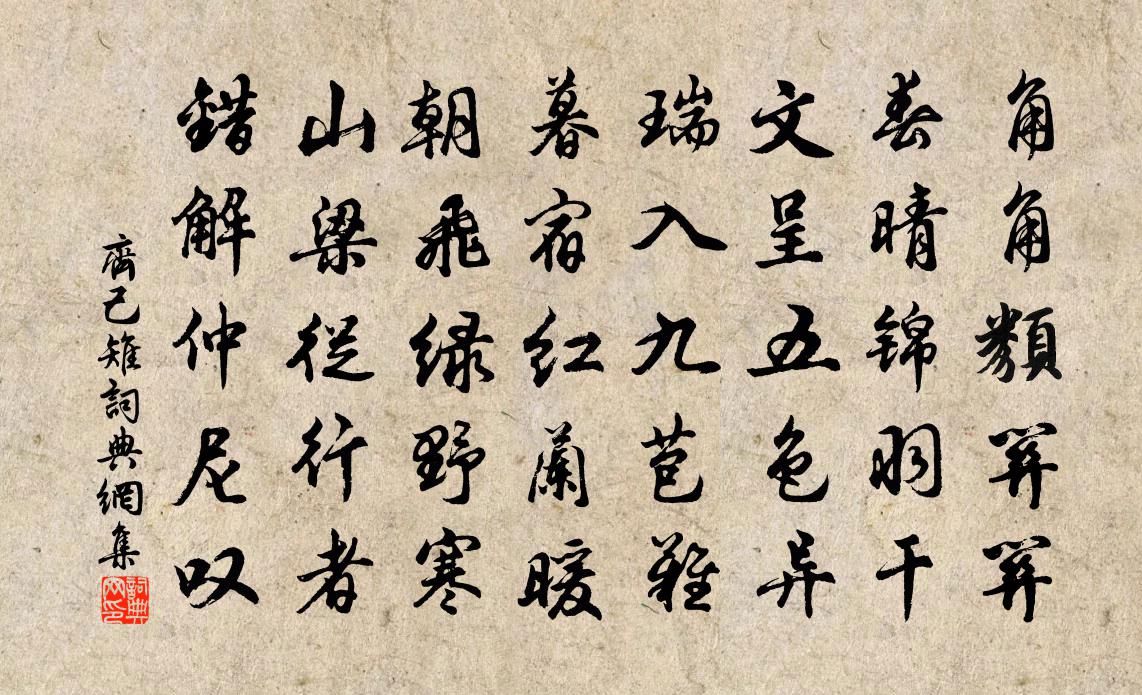 角角類關關
春晴锦羽干
文呈五色异
瑞入九苞難
暮宿红蘭暖
朝飛绿野寒
山梁從行者
錯解仲尼叹
齊己雉詞典網集
詞典网印